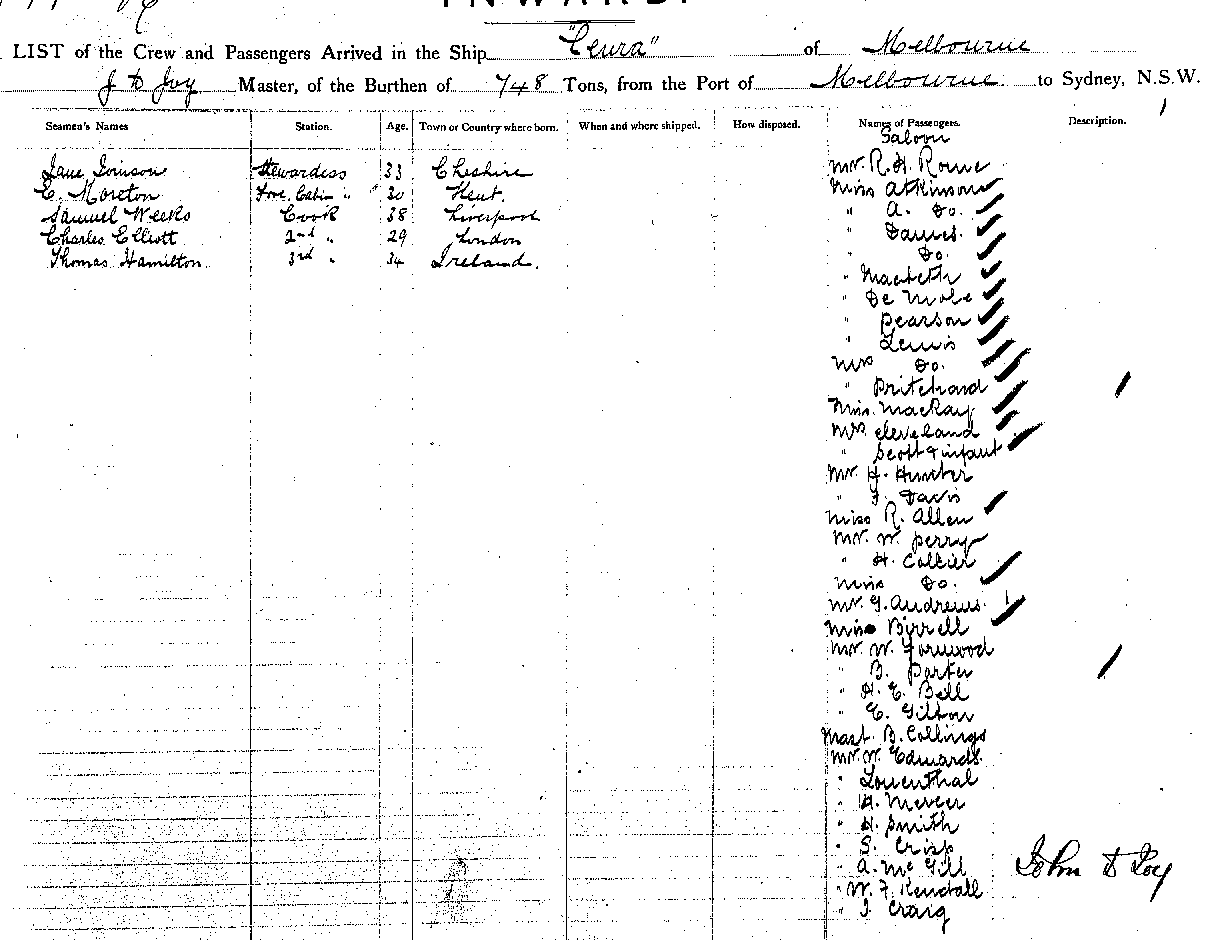 INWARD.
LIST of the Crew and Passengers Arrived in the Ship "Ceura" of Melbourne
J D Joy Master, of the Burthen of 748 Tons, from the Port of Melbourne to Sydney, N.S.W.
Seamen's Names Station. Age. Town or Country where born. When and where shipped. How disposed. Names of Passengers. Description.
Saloon
Jane Stewardess 33 Cheshire
E. Moreton Fore Cabin " 30 Kent.
Samuel Weeks Cook 38 Liverpool
Charles Elliott 2nd " 29 London
Thomas Hamilton 3rd " 34 Ireland.
Mr. R. H. Rowe
Miss Atkinson
" A. Do.
" Davies.
" Do.
" Macbeth
" De Mole
" Pearson
" Lewis
Mrs Do.
" Pritchard
Miss. Mackay
Mrs Cleveland
" Scott & infant
Mr. H. Hunter
" J. Davis
Miss R. Allen
Mr. W. Perry
" H. Collier
Miss Do.
Mr. G. Andrews.
Miss Birrell
Mr. W. Forwood
" B. Porter
" H. E. Bell
" E. Gilton
Mast. B. Collings
Mr. W. Edwards.
" Lowenthal
" H. Mercer
" H. Smith
" S. Crisp
" A. McGill
" W. F. Kendall
" J. Craig
John D Joy